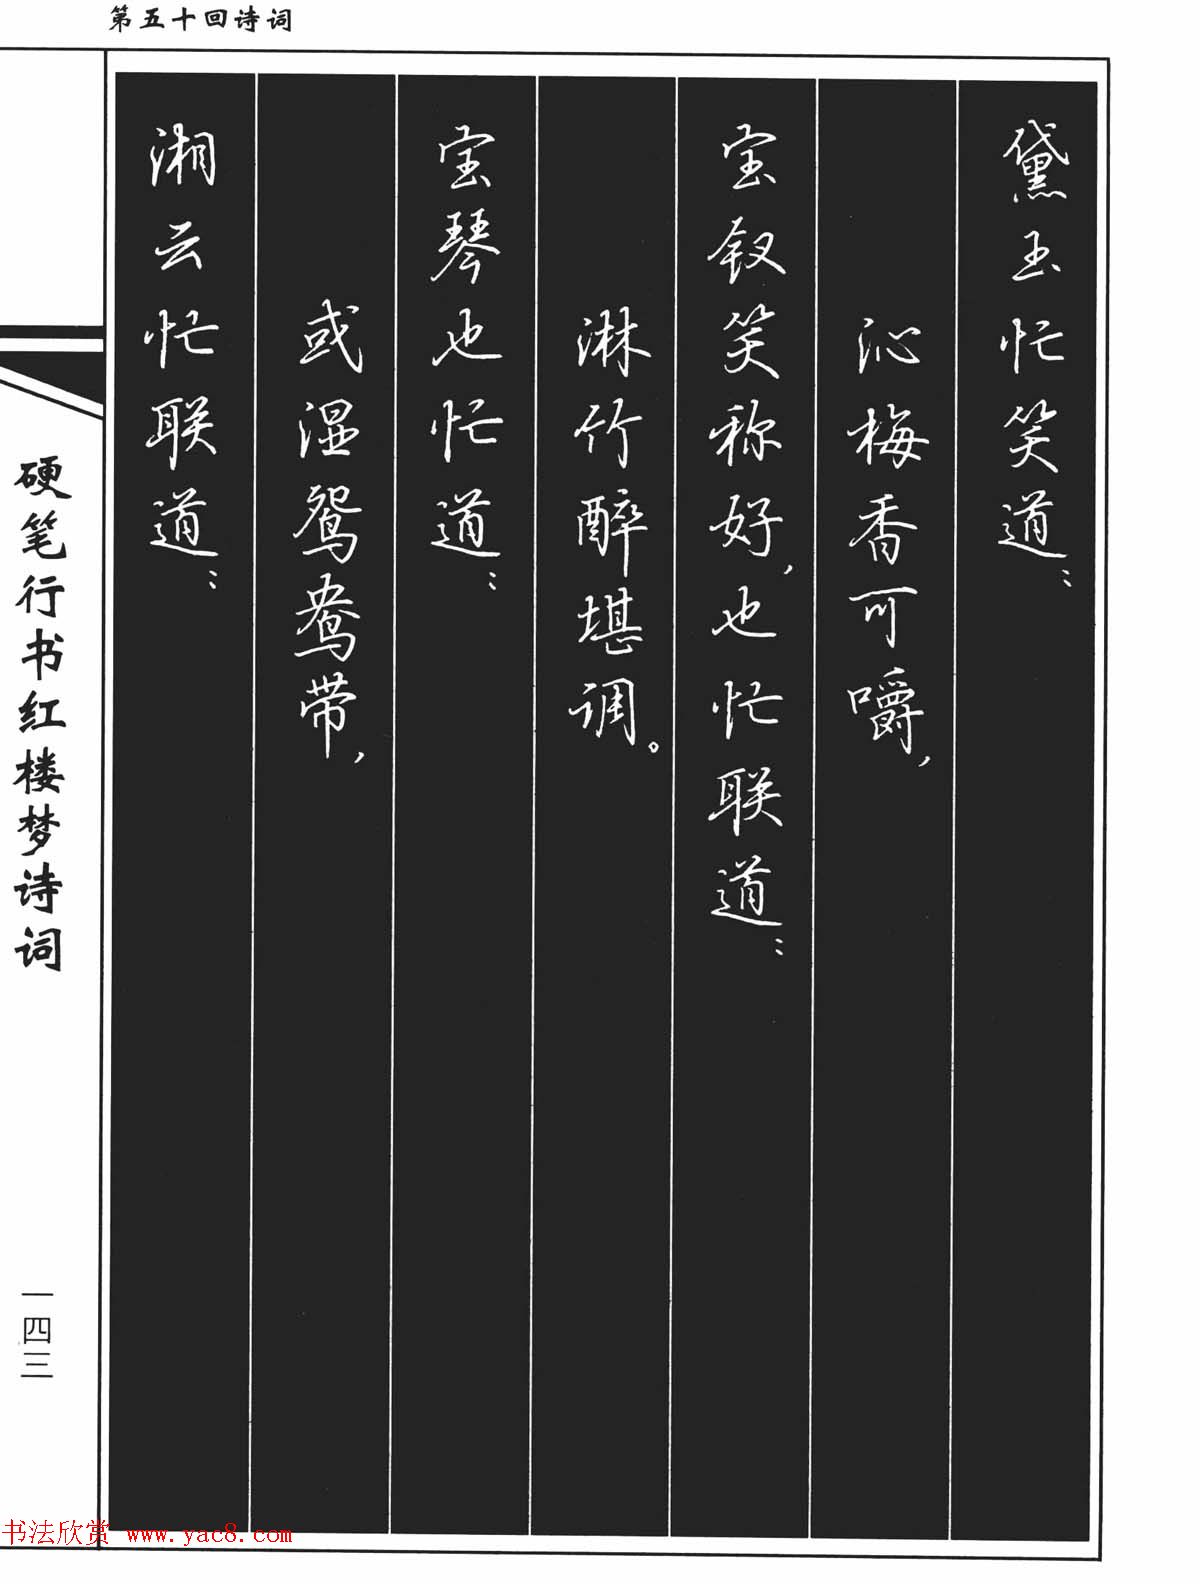 第五十回诗词
黛玉忙笑道：
沁梅香可嚼，
宝钗笑称好，也忙联道：
淋竹醉堪调。
宝琴也忙道：
或湿鸳鸯带，
湘云忙联道：
硬笔行书红楼梦诗词
一四三
书法欣赏 www.yac8.com